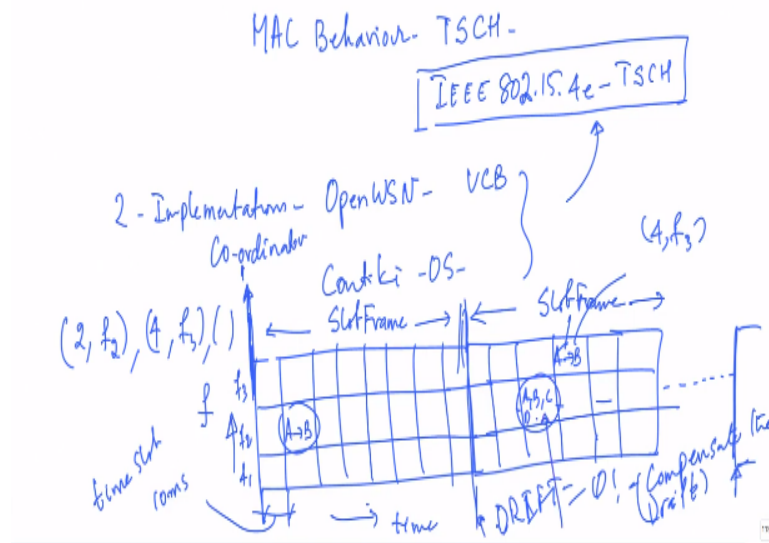 MAC Behaviour - TSCH -
IEEE 802.15.4e - TSCH
2 - Implementation - OpenWSN - UCB
Co-ordinator
Contiki - OS -
(4, f3)
(2, f2), (4, f3), ( )
SlotFrame
SlotFrame
f3
f
f2
f1
A→B
A→B
A,B,C
time slot
10ms
→ time
DRIFT = 0! - (Compensate
Drift)